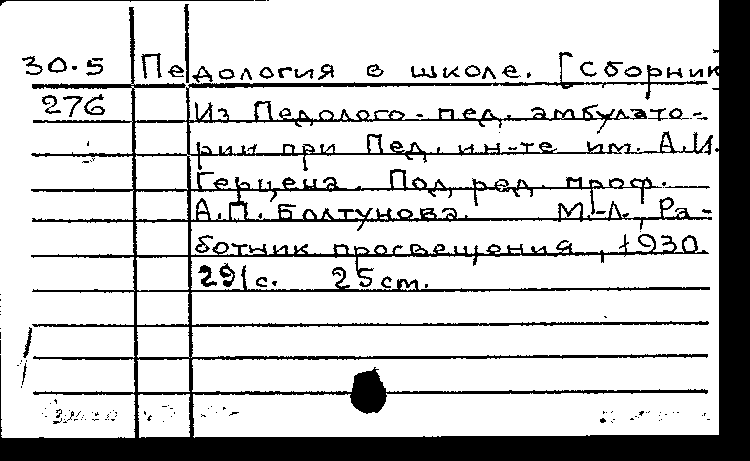 30.5 Педология в школе. [Сборник
276 Из Педолого-пед. амбулато-
рии при Пед. ин-те им. А.И.
Герцена. Под ред. проф.
А.П. Болтунова. М.-Л., Ра-
ботник просвещения, 1930.
291с. 25 ст.